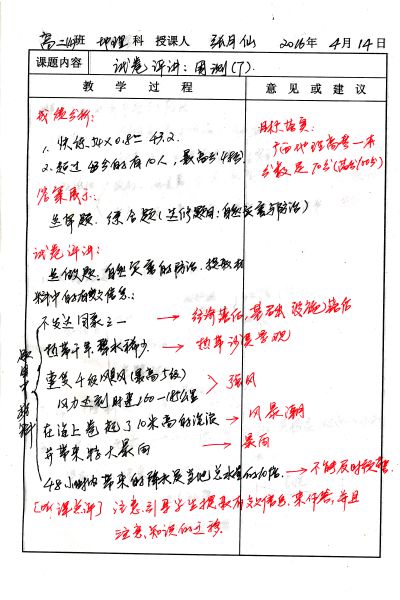 高二(4)班 地理 科 授课人 张月仙 2016年 4月14日
课题内容 试卷评讲：周测(7).
教 学 过 程 意 见 或 建 议
成绩分析：
2. 超过 的有10人，最高分48分
答案展示：
选择题、综合题(选修题目：自然灾害与防治)
试卷评讲：
选做题：自然灾害的防治、提取材
料中的有效信息：
不发达国家之一 → 经济落后，基础设施落后
热带干旱、降水稀少 → 热带沙漠景观
重复4级飓风(最高5级)
风力达到时速160—185公里 > 强风
在海上卷起了10米高的海浪 → 风暴潮
并带来特大暴雨 → 暴雨
48小时内带来的降水是当地总水量的10倍 → 不能及时
题目中材料
[听课点评] 注意引导学生提取有效信息来作答，并且
注意知识的迁移.
目标落实：
广西地理高考一本
分数是70分(满分100分)